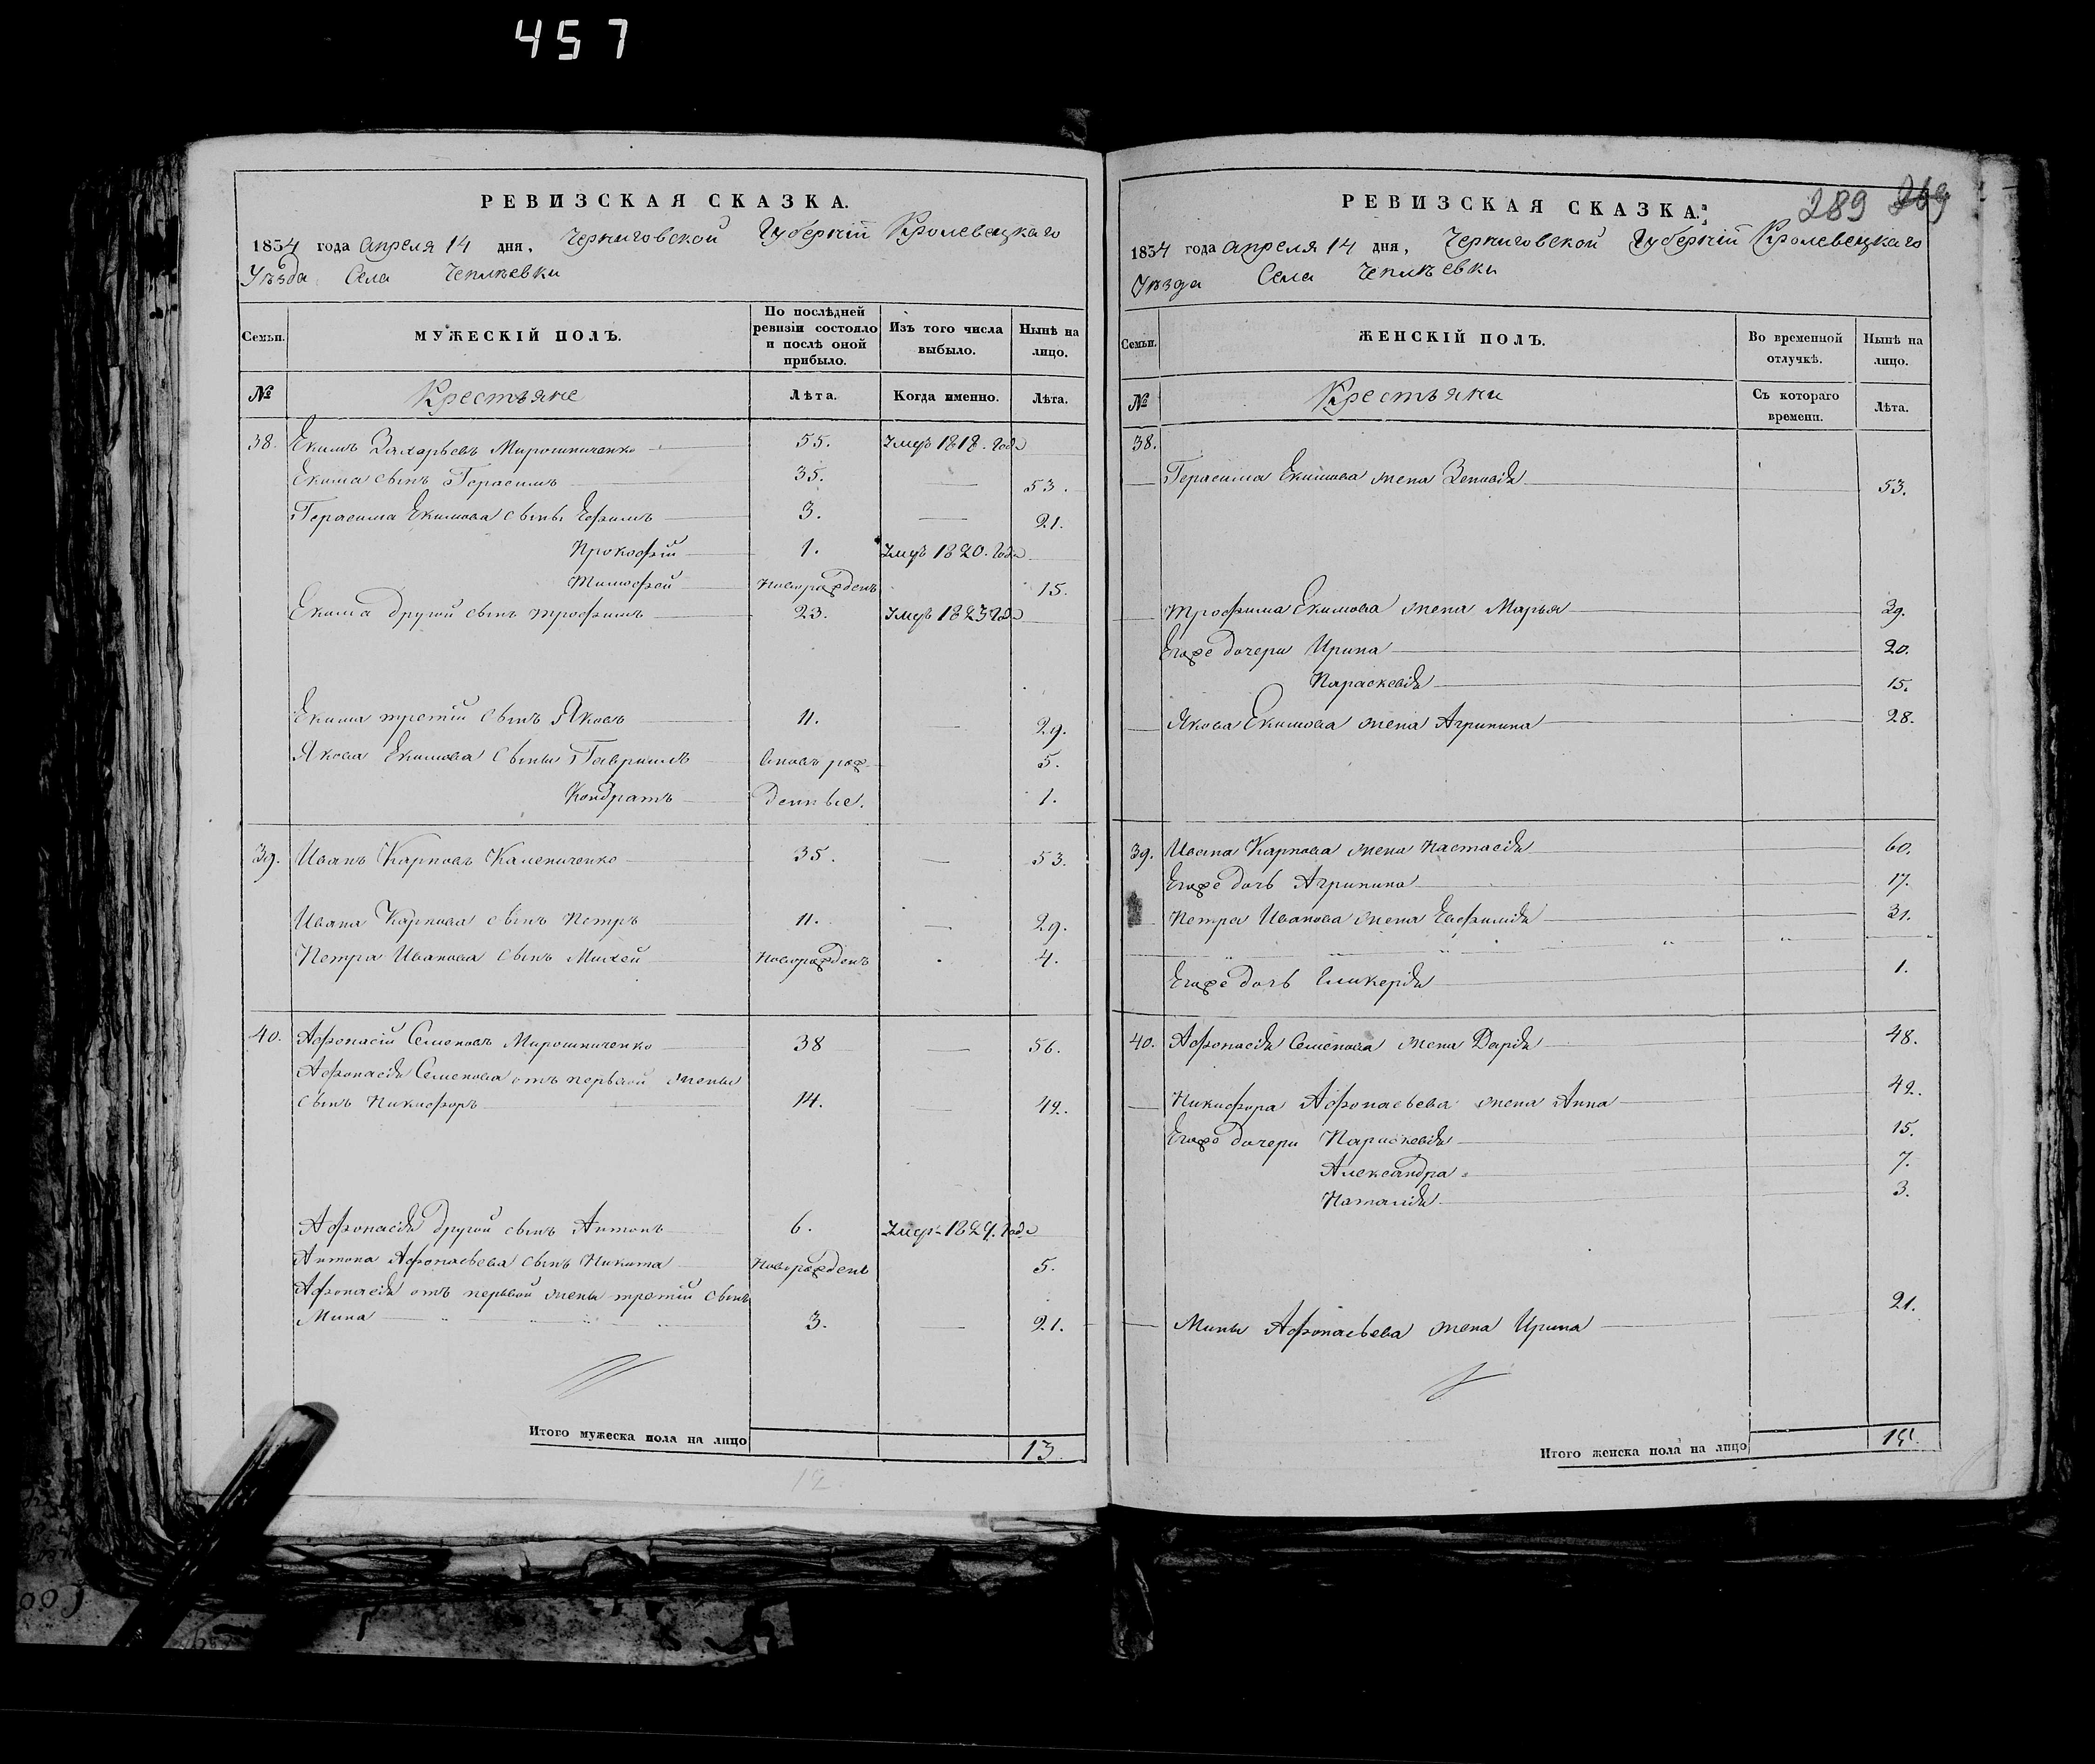 457
РЕВИЗСКАЯ СКАЗКА.
1834 года Апреля 14 дня, Черниговской Губерніи Кролевецкаго
Уѣзда Села Чеплѣевки
Семьи. МУЖЕСКІЙ ПОЛЪ. По послѣдней ревизіи состояло и послѣ оной прибыло. Изъ того числа выбыло. Нынѣ на лицо.
№ Крестьяне Лѣта. Когда именно. Лѣта.
38. Екимъ Захарьевъ Мирошниченко 55. Умеръ 1818. года
Екима сынъ Герасимъ 35. 53.
Герасима Екимова сынъ Ефимъ 3. 21.
Прокофій 1. Умеръ 1820. года
Тимофей новорожденъ 15.
Екима другой сынъ Трофимъ 23. Умеръ 1823 года
Екима третій сынъ Яковъ 11. 29.
Якова Екимова сыны Гавриилъ вновь рож- 5.
Кондратъ денные. 1.
39. Иванъ Карповъ Калениченко 35. 53.
Ивана Карпова сынъ Петръ 11. 29.
Петра Иванова сынъ Михей новорожденъ 4.
40. Афонасій Семеновъ Мирошниченко 38 56.
Афонасія Семенова отъ первой жены
сынъ Никифоръ 14. 42.
Афонасія другой сынъ Антонъ 6. Умер. 1829. года
Антона Афонасьева сынъ Никита новорожденъ 5.
Афонасія отъ первой жены третій сынъ
Мина 3. 21.
Итого мужеска пола на лицо 13
12
289 269
РЕВИЗСКАЯ СКАЗКА.
1834 года Апреля 14 дня, Черниговской Губерніи Кролевецкаго
Уѣзда Села Чеплѣевки
Семьи. ЖЕНСКІЙ ПОЛЪ. Во временной отлучкѣ. Нынѣ на лицо.
№ Крестьяни Съ котораго времени. Лѣта.
38.
Герасима Екимова жена Зеновія 53.
Трофима Екимова жена Марья 39.
Егоже дочери Ирина 20.
Параскевія 15.
Якова Екимова жена Агрипина 28.
39. Ивана Карпова жена Настасія 60.
Егоже дочь Агрипина 17.
Петра Иванова жена Евфимія 31.
Егоже дочь Гликерія 1.
40. Афонасія Семенова жена Дарія 48.
Никифора Афонасьева жена Анна 42.
Егоже дочери Парискевія 15.
Александра 7.
Наталія 3.
Мины Афонасьева жена Ирина 21.
Итого женска пола на лицо